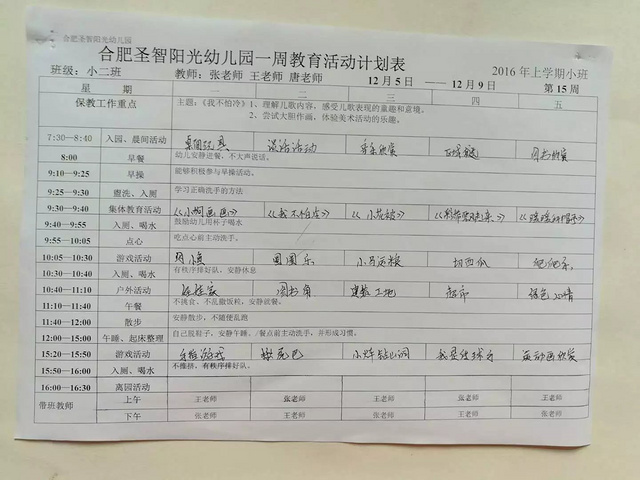 合肥圣智阳光幼儿园
合肥圣智阳光幼儿园一周教育活动计划表
班级：小二班 教师：张老师 王老师 唐老师 12月5日 ——12月9日 2016年上学期小班
第15周
星 期 一 二 三 四 五
保教工作重点 主题：《我不怕冷》1、理解儿歌内容，感受儿歌表现的童趣和意境。
2、尝试大胆作画，体验美术活动的乐趣。
7:30—8:40 入园、晨间活动 桌面玩具 谈话活动 音乐欣赏 图书欣赏
8:00 早餐 幼儿安静进餐，不大声说话。
9:10—9:25 早操 能够积极参与早操活动。
9:25—9:30 盥洗、入厕 学习正确洗手的方法
9:30—9:40 集体教育活动 《我不怕冷》
9:40—9:55 入厕、喝水 鼓励幼儿用杯子喝水
9:55—10:05 点心 吃点心前主动洗手。
10:05—10:30 游戏活动 圆圆乐 小马运粮 切西瓜
10:30—10:40 入厕、喝水 有秩序排好队，安静休息
10:40—11:10 户外活动 娃娃家 图书角 建筑工地 超市
11:10—11:40 午餐 不挑食、不乱撒饭粒，安静就餐。
11:40—12:00 散步 安静散步，不随便乱跑
12:00—15:00 午睡、起床整理 自己脱鞋子，安静午睡。/餐点前主动洗手，并形成习惯。
15:20—15:50 游戏活动 揪尾巴 小羊钻山洞 我是传球手
15:50—16:00 入厕、喝水 不推挤，有秩序排好队。
16:00—16:30 离园活动
带班教师 上午 王老师 张老师 王老师 张老师 王老师
下午 张老师 王老师 张老师 王老师 张老师